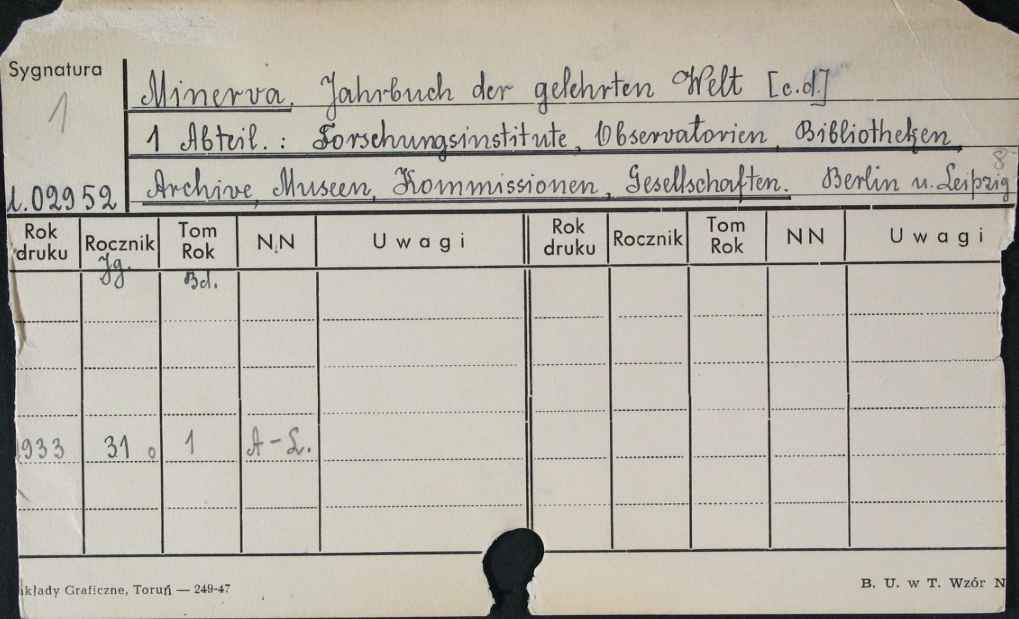 Sygnatura
1
Minerva. Jahrbuch der gelehrten Welt [c.d.]
1 Abteil.: Forschungsinstitute, Observatorien, Bibliotheken,
8
02952 Archive, Museen, Kommissionen, Gesellschaften. Berlin u. Leipzig
Rok druku Rocznik Tom Rok N.N Uwagi Rok druku Rocznik Tom Rok NN Uwagi
Jg. Bd.
1933 31 1 A-L.
kłady Graficzne, Toruń — 249-47 B. U. w T. Wzór N